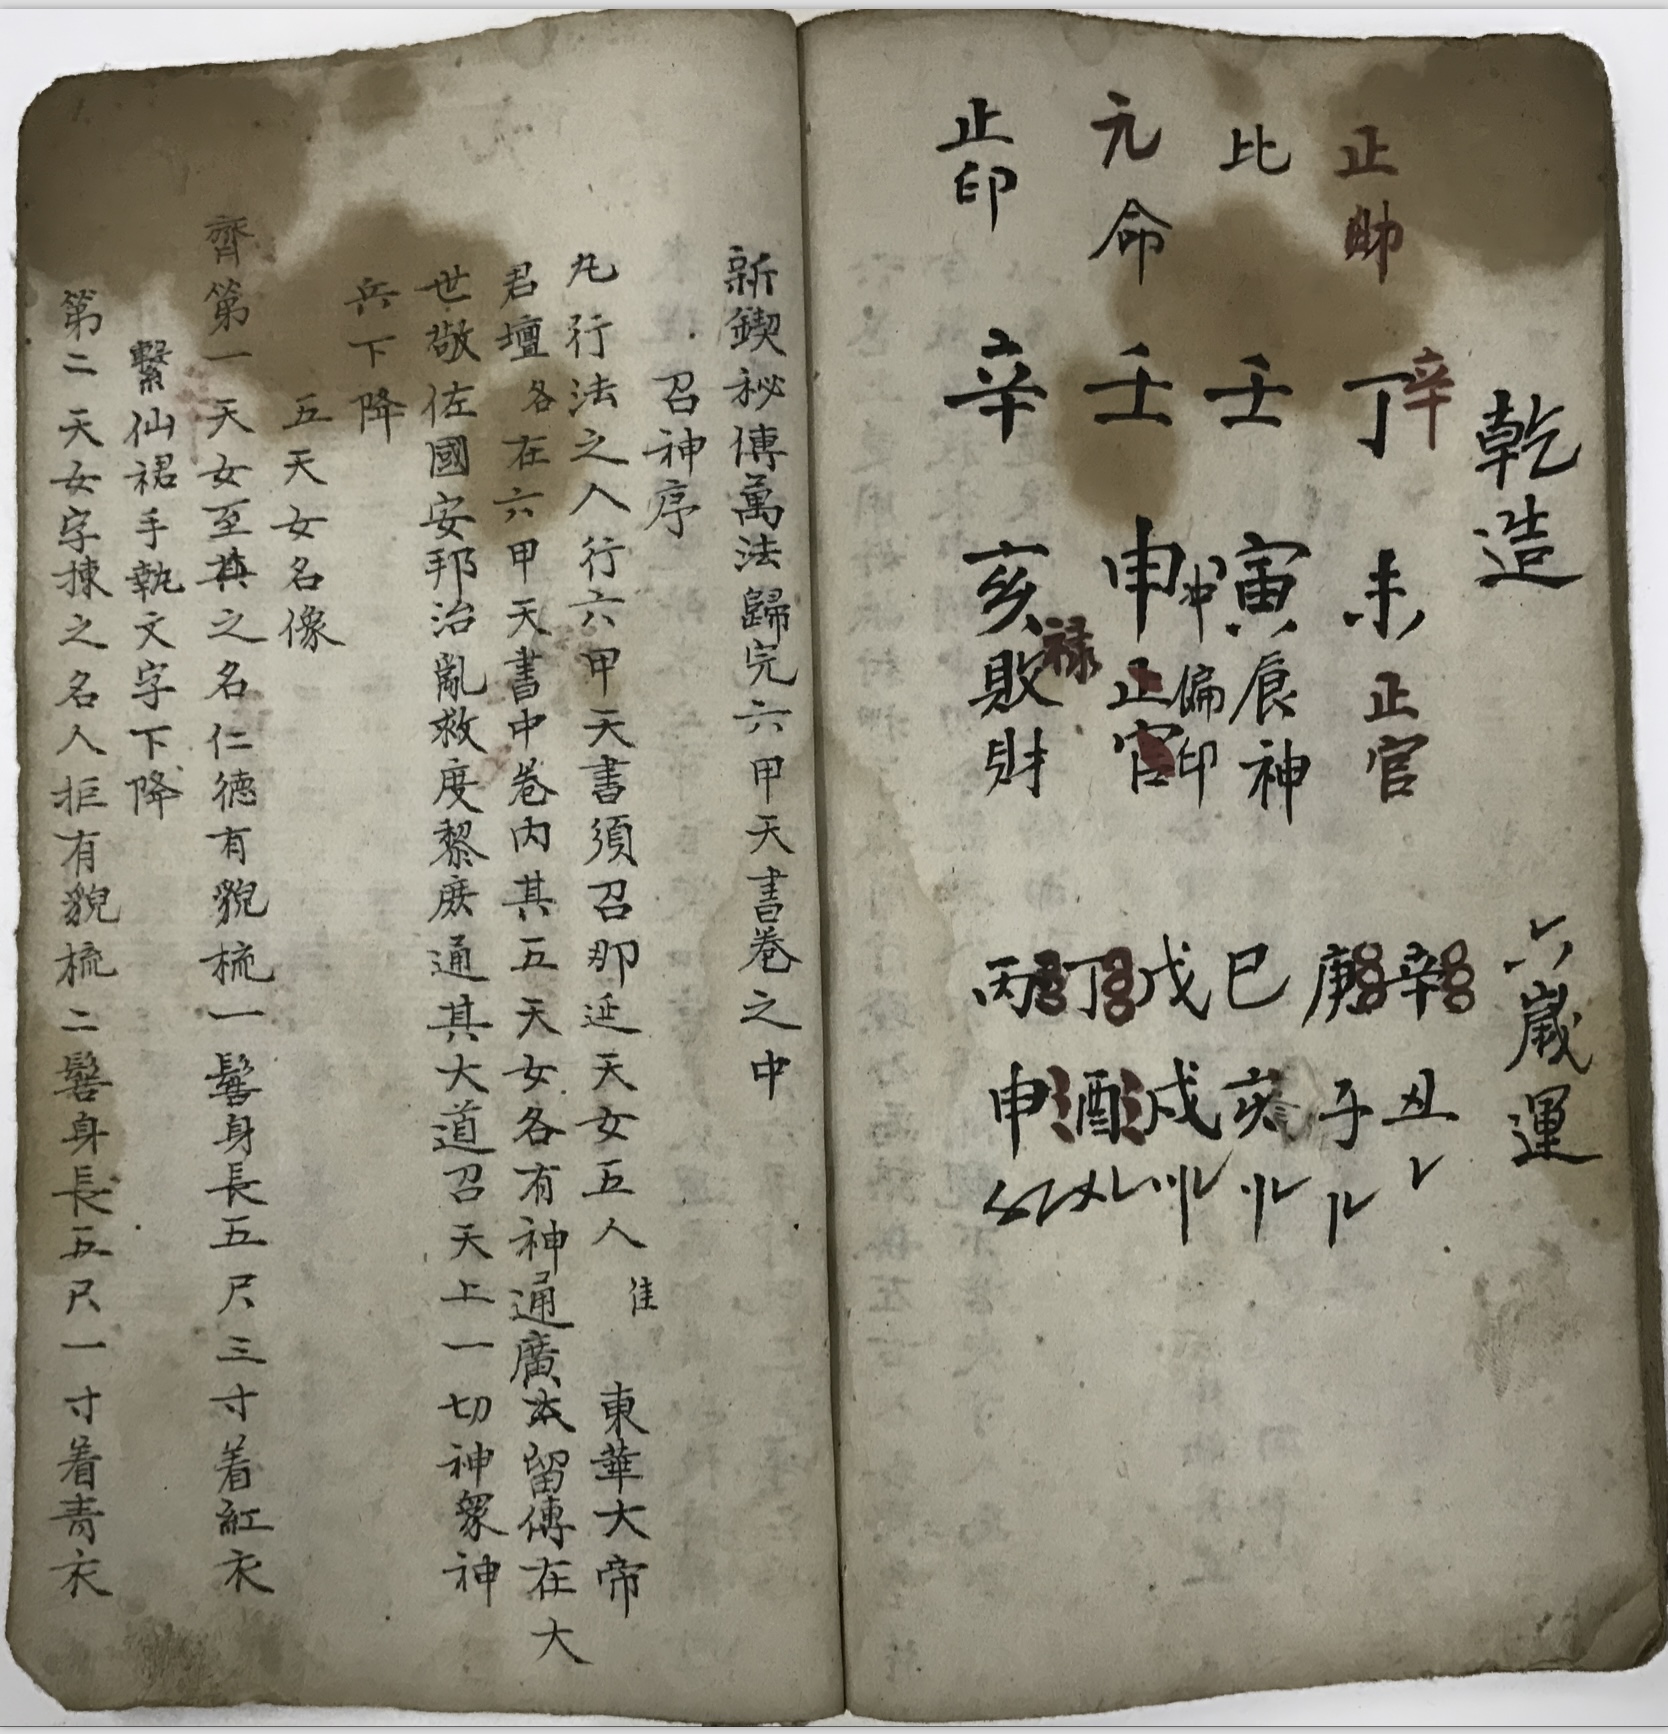 乾造
正財
丁辛
未
正官
比
壬
寅
辰神
元命
壬
申冲
正官
偏印
正印
辛
亥禄
敗財
六歲運
辛丑
庚子
巳亥
戊戌
丁酉
丙申
新鍥秘傳萬法歸完六甲天書卷之中
召神序
凢行法之人行六甲天書須召那延天女五人 東華大帝
君壇各在六甲天書中卷內其五天女各有神通廣本留傳在大
世敬佐國安邦治亂救度黎庶通其大道召天上一切神眾神
兵下降
五天女名像
齊第一天女至其之名仁德有貌梳一鬠身長五尺三寸着紅衣
繫仙裙手執文字下降
第二天女字揀之名人拒有貌梳二鬠身長五尺一寸着青衣